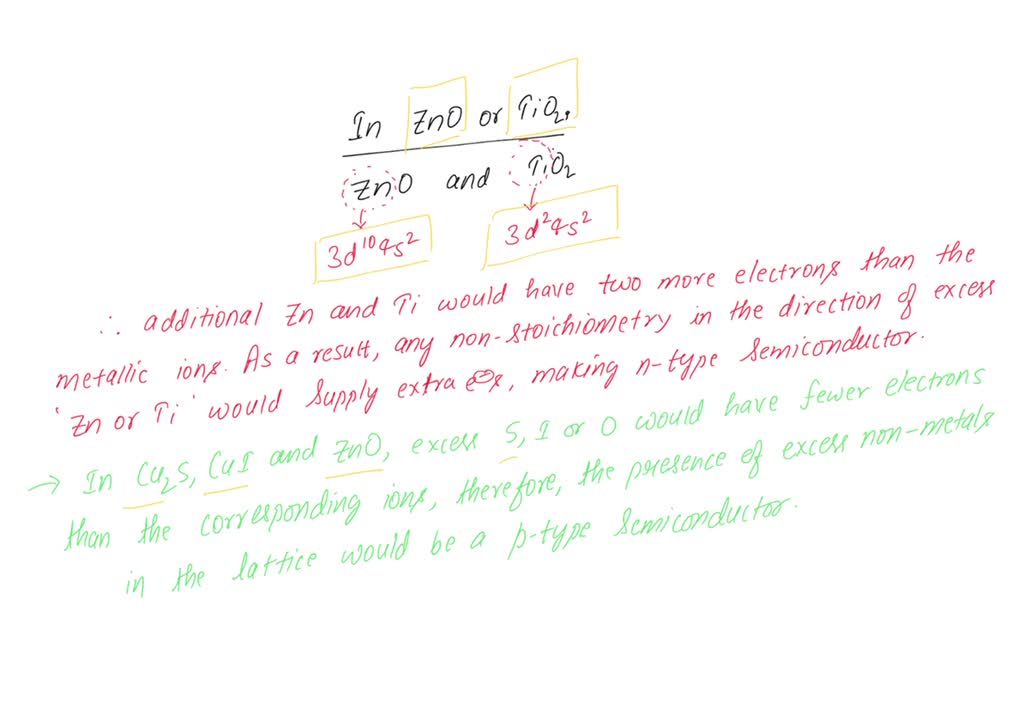 In ZnO or TiO₂.
ZnO and TiO₂
3d¹⁰4s² 3d²4s²
∴ additional Zn and Ti would have two more electrons than the
metallic ions. As a result, any non-stoichiometry in the direction of excess
'Zn or Ti' would supply extra e⊖s, making n-type semiconductor.
→ In Cu₂S, CuI and ZnO, excess S, I or O would have fewer electrons
than the corresponding ions, therefore, the presence of excess non-metals
in the lattice would be a p-type semiconductor.